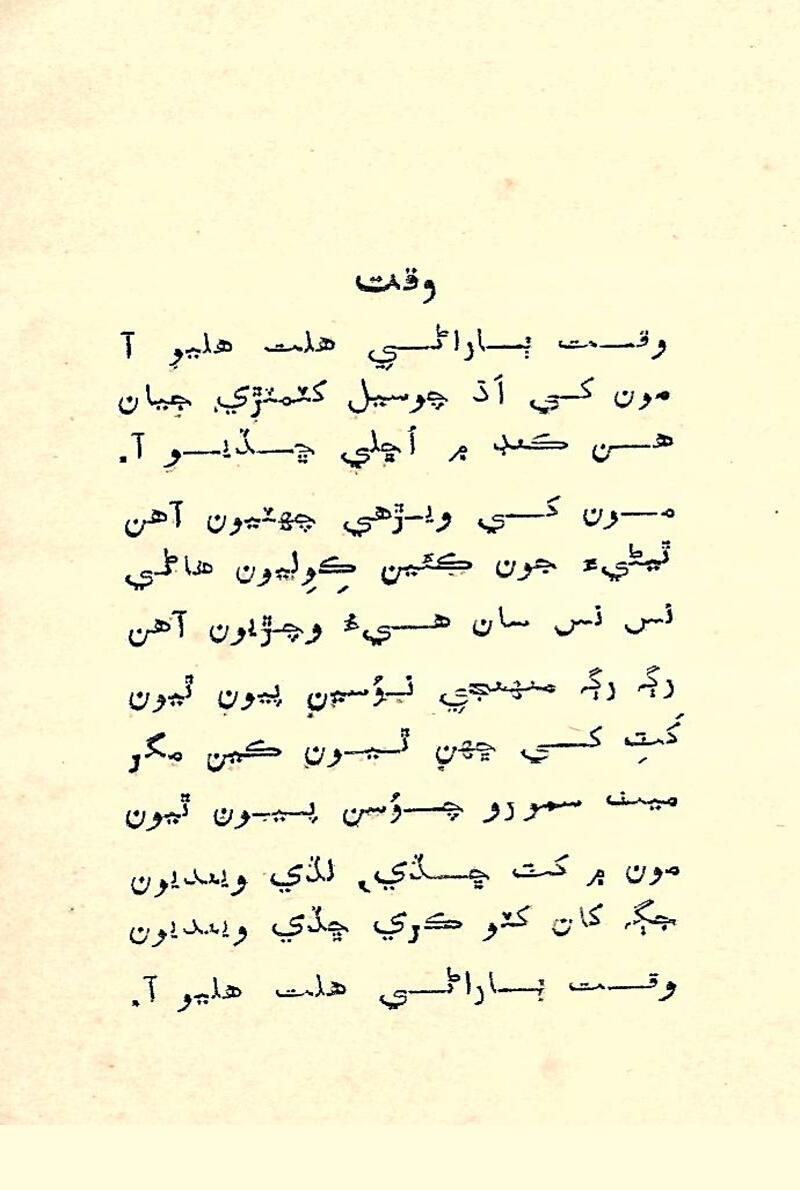 وقت
وقت ٻاراڻي هلت هليو آ
مون کي اَڌ چوسيل کٽمٺڙي جيان
هن ڪنڊ ۾ اُڇلي ڇڏيو آ.
مون کي ويڙهي چهٽيون آهن
ٿيڻيءَ جون ڪئين ڪِوِليون هاڻي
نس نس سان هيءُ وچڙيون آهن
رڳ رڳ منهنجي ٿوُسين پيون ٿيون
کَٽِ کي ڇهن ٿيون ڪين مگر
ميٺ سمورو چوُسن پيون ٿيون
مون ۾ کٽ ڇڏي، لڏي وينديون
جڳہ کان کٽو ڪري ڇڏي وينديون
وقت ٻاراڻي هلت هليو آ.